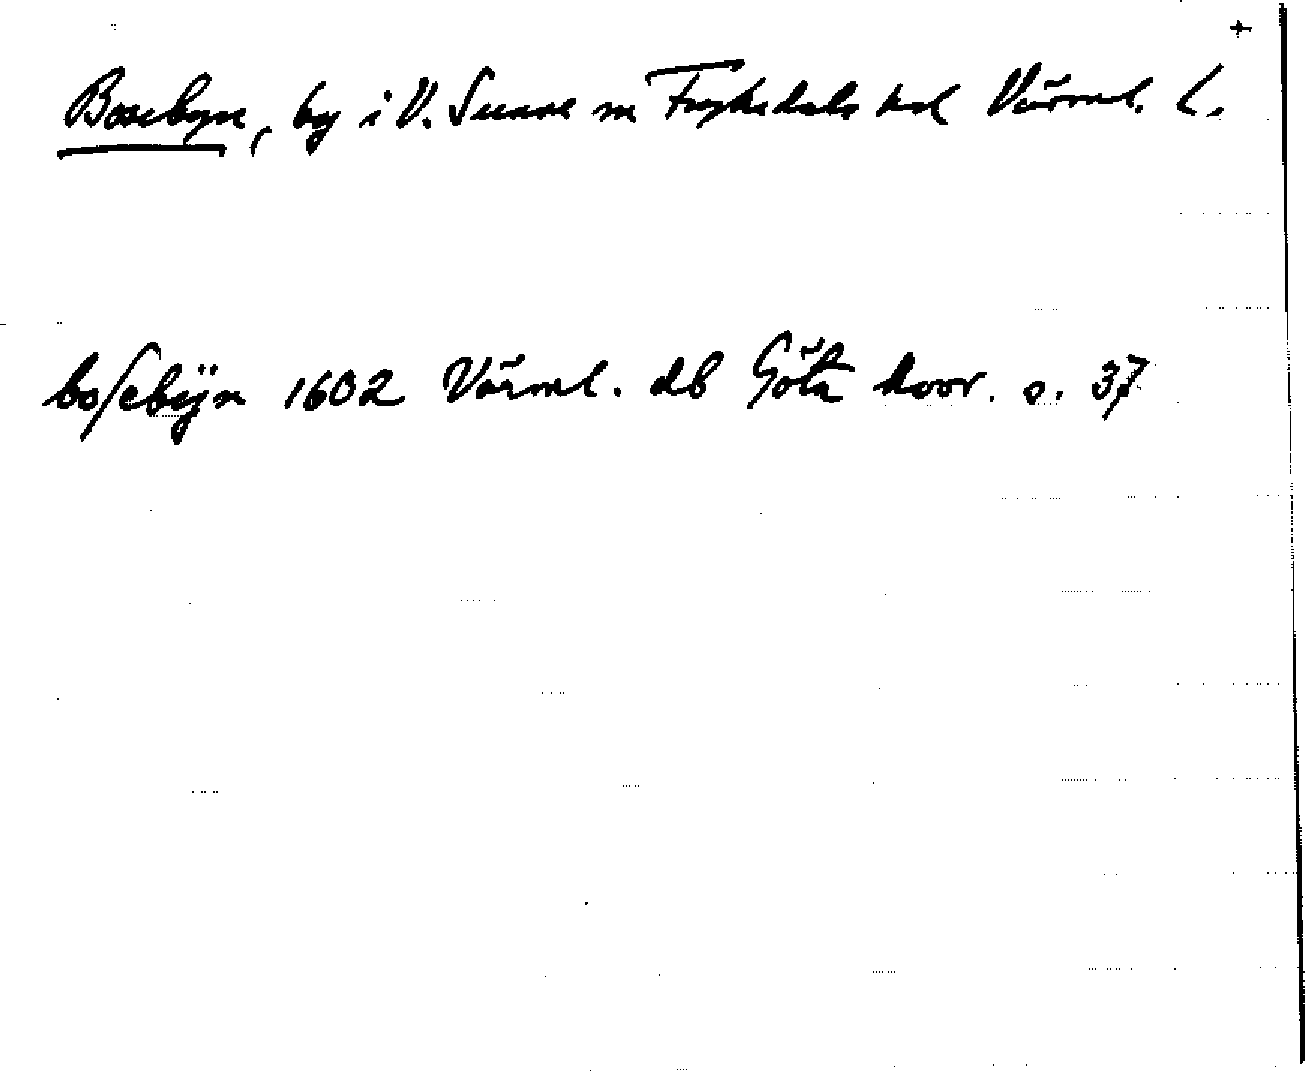 +
Bosebyn, by i V. Sunne sn Fryksdals hd Värml. l.
bosebÿn 1602 Värml. db Göta hovr. s. 37